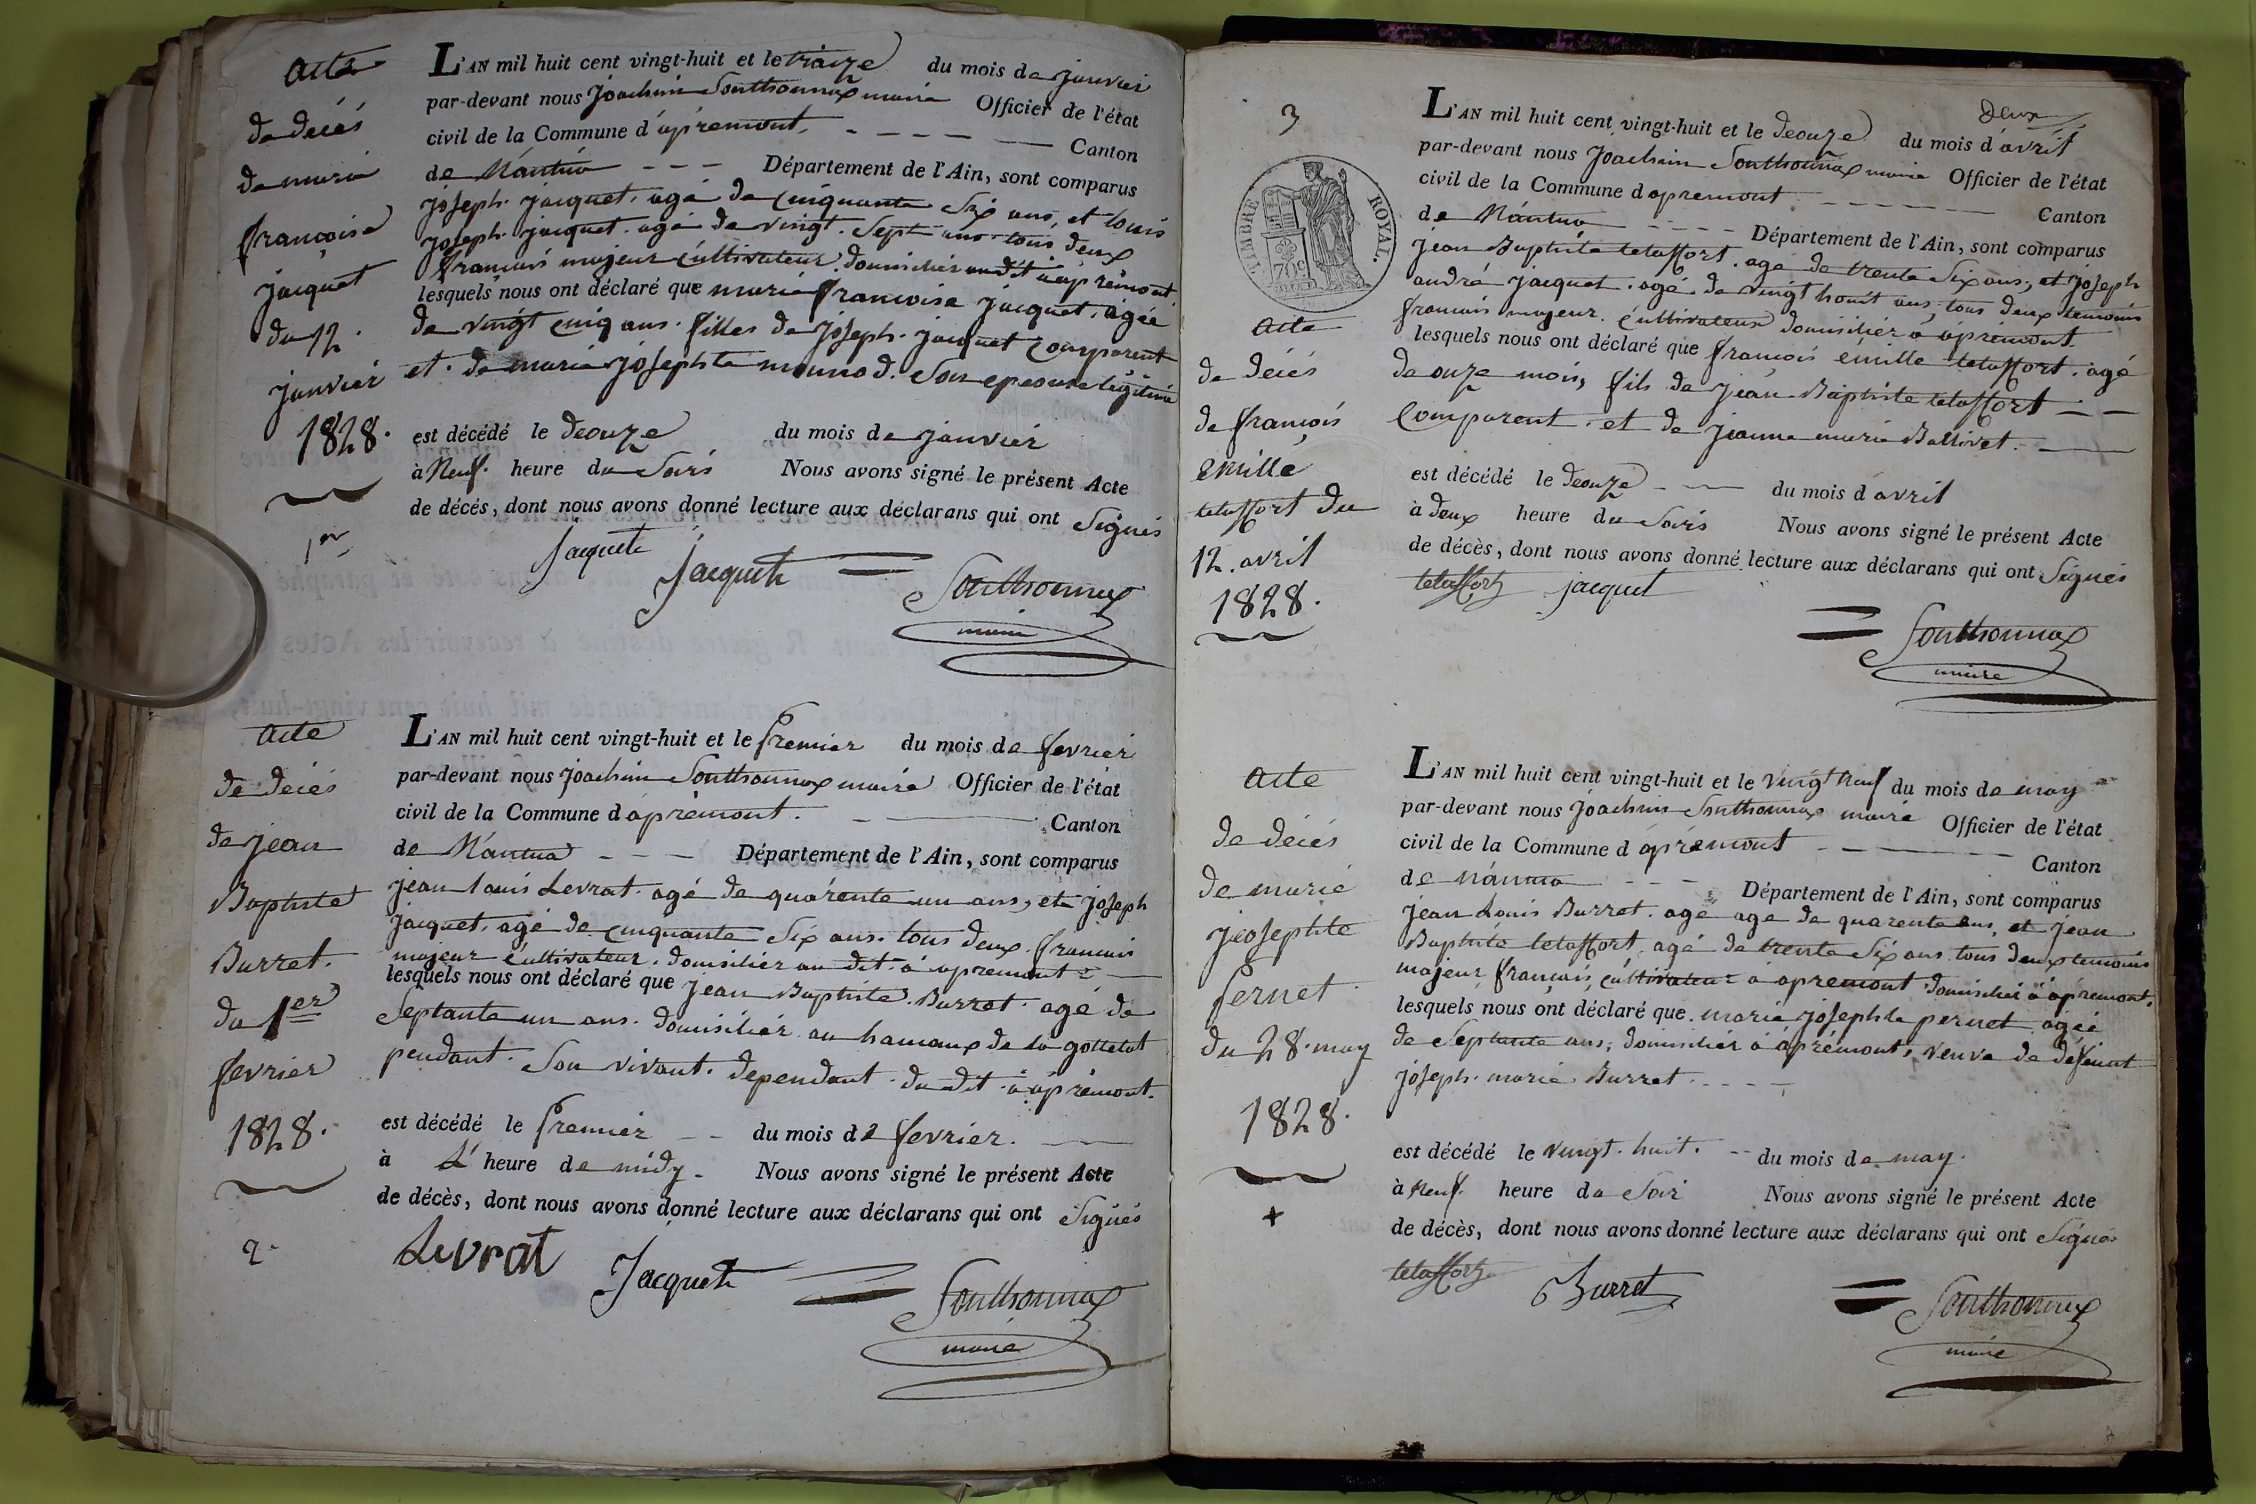 acte
de décés
de marie
françoise
jacquet
du 12.
janvier
1828.
1er
L'AN mil huit cent vingt-huit et le traize du mois de janvier
par-devant nous Joachim Sonthonnax maire Officier de l'état
civil de la Commune d'apremont. Canton
de Nantua Département de l'Ain, sont comparus
joseph. jacquet. agé de cinquante Six ans, et louis
joseph. jacquet. agé de vingt. Sept ans. tous deux
francais majeur cultivateur. domicilier au dit a apremont.
lesquels nous ont déclaré que marie francoise jacquet. agée
de vingt cinq ans. filles de joseph. jacquet comparent
et. de marie josephte monnod. Son epeouse légitime
est décédé le deouze du mois de janvier
à Neuf. heure du Soirs Nous avons signé le présent Acte
de décés, dont nous avons donné lecture aux déclarans qui ont Signés
Jacquet Jacquet Sonthonnax
maire
acte
de décés
de jean
Baptiste
Burret.
du 1er
fevrier
1828.
2.
L'AN mil huit cent vingt-huit et le Premier du mois de fevrier
par-devant nous Joachim Sonthonnax maire Officier de l'état
civil de la Commune d'apremont. Canton
de Nantua Département de l'Ain, sont comparus
jean louis Levrat. agé de quarente un ans, et joseph
jacquet. agé de cinquante Six ans. tous deux. francais
majeur cultivateur. domicilier au dit. a apremont
lesquels nous ont déclaré que jean Baptiste. Burret. agé de
Septante un ans. domicilier au hameaux de la gottetat
pendant. Son vivant. dependant. du dit. a apremont.
est décédé le Premier du mois de fevrier.
à L' heure de midy. Nous avons signé le présent Acte
de décès, dont nous avons donné lecture aux déclarans qui ont Signés
Levrat Jacquet Sonthonnax
maire
deux
3
TIMBRE ROYAL.
70c
acte
de décés
de françois
emille
letaffort du
12. avril
1828.
L'AN mil huit cent vingt-huit et le deouze du mois d'avril
par-devant nous Joachim Sonthonnax maire Officier de l'état
civil de la Commune d'apremont Canton
de Nantua Département de l'Ain, sont comparus
jean Baptiste letaffort. agé de trente Six ans, et joseph
andré jacquet. agé de vingt houit ans, tous deux temoins
francais majeur. cultivateur domicilier a apremont
lesquels nous ont déclaré que francois émille letaffort. agé
de onze mois, fils de jean Baptiste letaffort
comparent. et de jeanne marie Ballivet.
est décédé le deouze du mois d'avril
à deux heure du Soirs Nous avons signé le présent Acte
de décès, dont nous avons donné lecture aux déclarans qui ont Signés
letaffort jacquet
Sonthonnax
maire
acte
de décés
de marie
jeosephte
Pernet
du 28. may
1828.
+
L'AN mil huit cent vingt-huit et le vingt Neuf du mois de may
par-devant nous Joachim Sonthonnax maire Officier de l'état
civil de la Commune d'apremont Canton
de nantua Département de l'Ain, sont comparus
jean Louis Burret. agé agé de quarente ans, et jean
Baptiste letaffort, agé de trente Six ans. tous deux temoins
majeur français, cultivateur a apremont domicilier a apremont.
lesquels nous ont déclaré que marie josephte pernet agée
de Septante ans, domicilier a apremont, veuve de defeunt
joseph. marie Burret.
est décédé le vingt. huit. du mois de may.
à Neuf. heure du Soir Nous avons signé le présent Acte
de décès, dont nous avons donné lecture aux déclarans qui ont Signés
letaffort Burret
Sonthonnax
maire